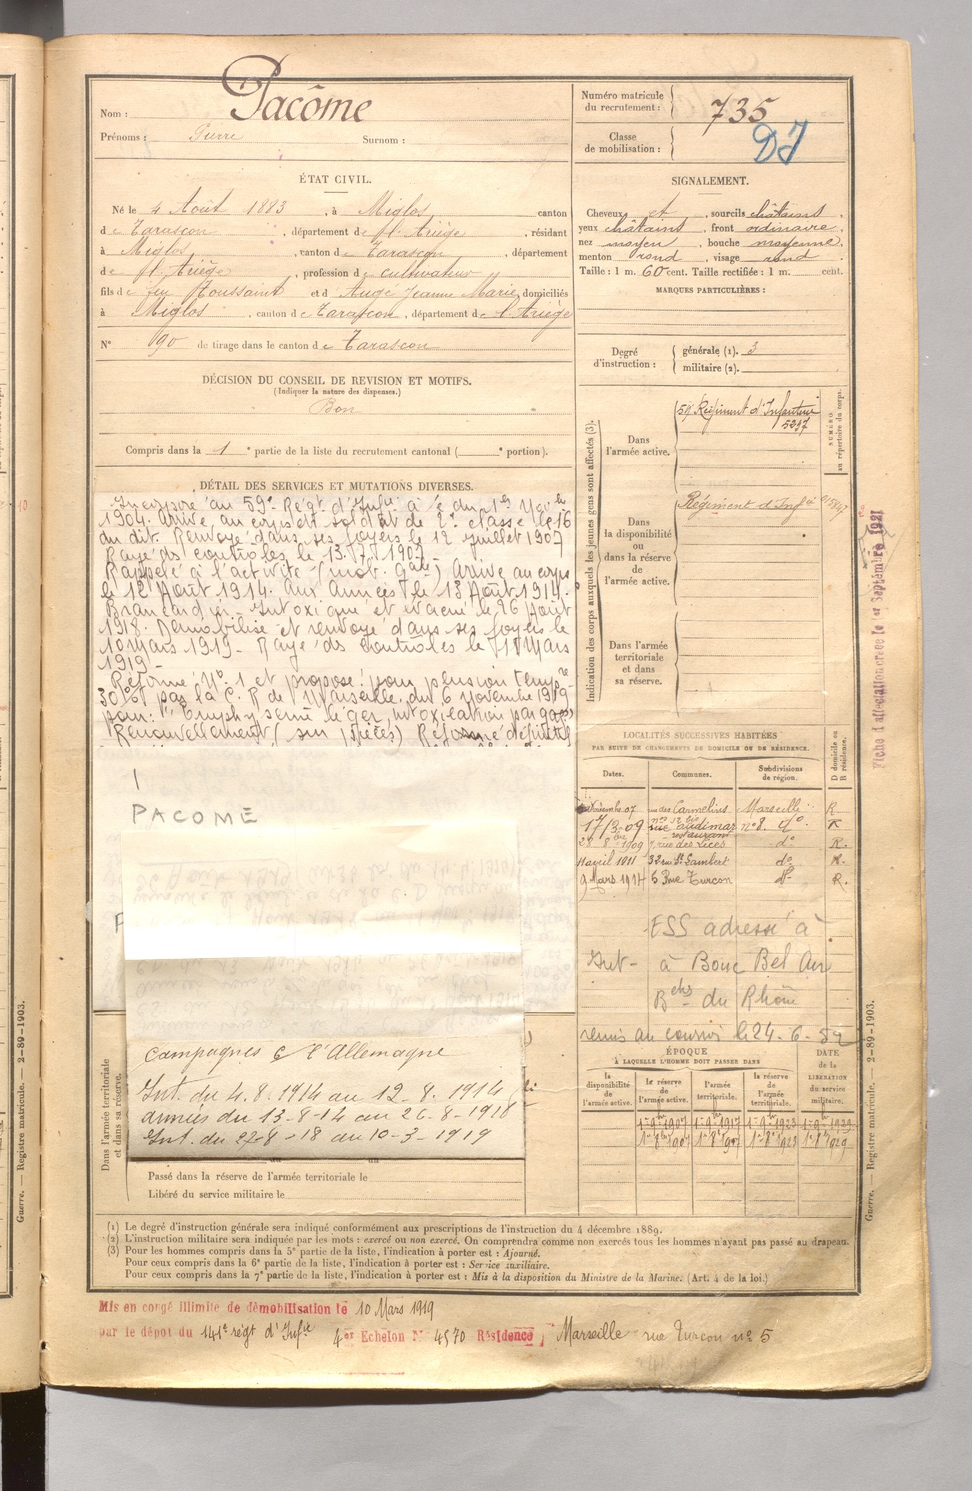 Nom : Pacôme
Prénoms : Pierre Surnom :
Numéro matricule
du recrutement : 735
Classe
de mobilisation :
ÉTAT CIVIL.
Né le 4 Août 1883, à Miglos, canton
de Tarascon, département de l'Ariège, résidant
à Miglos, canton de Tarascon, département
de l'Ariège, profession de cultivateur
fils de feu Toussaint et d'Augé Jeanne Marie, domiciliés
à Miglos, canton de Tarascon, département de l'Ariège
N° 90 de tirage dans le canton de Tarascon
SIGNALEMENT.
Cheveux et, sourcils châtains,
yeux châtains, front ordinaire,
nez moyen, bouche moyenne,
menton rond, visage rond
Taille : 1 m. 60 cent. Taille rectifiée : 1 m. cent.
MARQUES PARTICULIÈRES :
Degré
d'instruction :
générale (1). 3
militaire (2).
DÉCISION DU CONSEIL DE REVISION ET MOTIFS.
(Indiquer la nature des dispenses.)
Bon
Compris dans la 1e partie de la liste du recrutement cantonal ( e portion).
DÉTAIL DES SERVICES ET MUTATIONS DIVERSES.
Incorporé au 59e Régt d'Infie à c du 1er Nov.bre
1904. Arrivé au corps et soldat de 2e classe le 16
du dit. Renvoyé dans ses foyers le 12 juillet 1907
Rayé des contrôles le 13.7.1907.
Rappelé à l'activité (mob. gale) Arrivé au corps
le 12 Août 1914. Aux armées le 13 Août 1914.
Brancardier. Intoxiqué et évacué le 26 Août
1918. Démobilisé et renvoyé dans ses foyers le
10 Mars 1919. Rayé des contrôles le 11 Mars
1919.
Réformé N° 1 et proposé pour pension tempre
30% par la C. R. de Marseille du 6 novembre 1919
pour : "Emphysème léger, intoxication par gaz"
Renouvellement (sur pièces) Réforme définitive
PACOME
Campagnes C l'Allemagne
Int. du 4.8.1914 au 12-8.1914
armées du 13-8-14 au 26-8-1918
Int. du 27-8-18 au 10-3-1919
Dans l'armée territoriale
et dans sa réserve.
Passé dans la réserve de l'armée territoriale le
Libéré du service militaire le
Indication des corps auxquels les jeunes gens sont affectés (3).
Dans
l'armée active.
59e Régiment d'Infanterie
5297
NUMÉRO
au répertoire du corps.
Dans
la disponibilité
ou
dans la réserve
de
l'armée active.
Régiment d'Infie
Dans l'armée
territoriale
et dans
sa réserve.
Fiche d'affectation créée le 1er Septembre 1921
LOCALITÉS SUCCESSIVES HABITÉES
PAR SUITE DE CHANGEMENTS DE DOMICILE OU DE RÉSIDENCE.
Dates. Communes. Subdivisions
de région.
D domicile ou
R résidence.
07 rue des Carmelins Marseille R
17/3-09 n° 8. do R
1909 rue des Lices do R.
11 avril 1911 32 rue St Lambert do R.
9 Mars 1914 6 Rue Turcon do R.
ESS adressé à
Int- à Bouc Bel Air
Bches du Rhône
remis au courrier le 24-6-52
ÉPOQUE
À LAQUELLE L'HOMME DOIT PASSER DANS
la
disponibilité
de
l'armée active.
la réserve
de
l'armée active.
l'armée
territoriale.
la réserve
de
l'armée
territoriale.
DATE
de la
LIBÉRATION
du service
militaire.
1-9bre 1907 1-9bre 1917 1-9bre 1923 1-9bre 1929
(1) Le degré d'instruction générale sera indiqué conformément aux prescriptions de l'instruction du 4 décembre 1889.
(2) L'instruction militaire sera indiquée par les mots : exercé ou non exercé. On comprendra comme non exercés tous les hommes n'ayant pas passé au drapeau.
(3) Pour les hommes compris dans la 5e partie de la liste, l'indication à porter est : Ajourné.
Pour ceux compris dans la 6e partie de la liste, l'indication à porter est : Service auxiliaire.
Pour ceux compris dans la 7e partie de la liste, l'indication à porter est : Mis à la disposition du Ministre de la Marine. (Art. 4 de la loi.)
Mis en congé illimité de démobilisation le 10 Mars 1919
par le dépôt du 141e régt d'Infie 4e Echelon N° 4570 Résidence Marseille rue Turcon n° 5
Guerre. — Registre matricule. — 2-89-1903.
Guerre. — Registre matricule. — 2-89-1903.